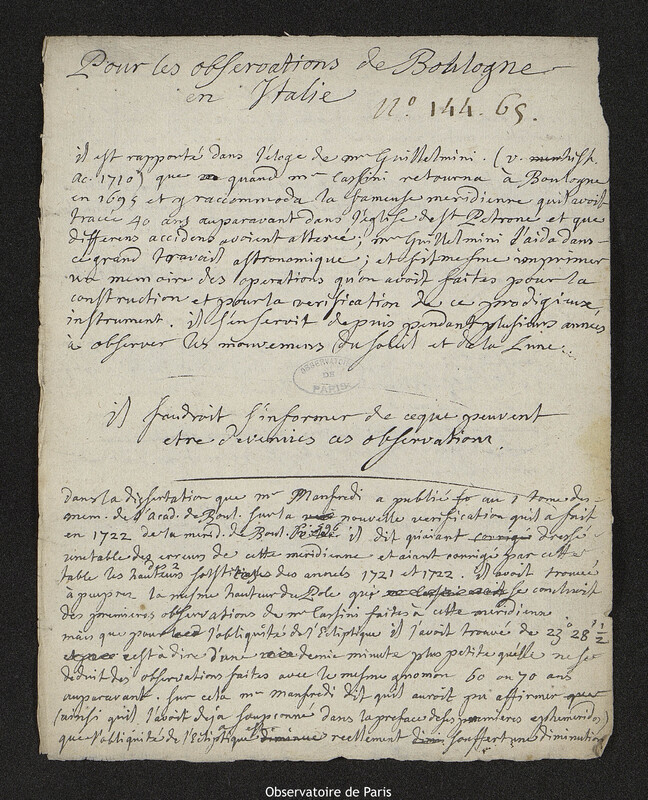 Pour les observations de Boulogne
en Italie
N.º 144. 65.
il est rapporté dans l'éloge de mr Guillelmini. (v.
ac. 1710) que quand mr Cassini retourna à Boulogne
en 1695 et y raccommoda la fameuse meridienne qu'il avoit
tracée 40 ans auparavant dans l'église de St Petrone et que
differens accidens avoient alterée; mr Guillelmini l'aida dans
ce grand travail astronomique; et fit mesme imprimer
un memoire des operations qu'on avoit faites pour la
construction et pour la verification de ce prodigieux
instrument. il s'en servit depuis pendant plusieurs années
à observer les mouvemens du soleil et de la Lune.
OBSERVATOIRE
DE
PARIS
il faudroit s'informer de ce que peuvent
etre devenues ces observations.
dans la dissertation que mr Manfredi a publié au 1 tome des
mem. de l'acad. de Boul. sur la nouvelle verification qu'il a fait
en 1722 de la merid. de Boul. il dit qu'aiant dressé
une table des erreurs de cette meridienne et aiant corrigé par cette
table les hauteurs solsticiales des années 1721 et 1722. il avoit trouvé
à peu pres la mesme hauteur du Pole qui se concluoit
des premieres observations de mr Cassini faites à cette meridienne
mais que pour l'obliquité de l'Ecliptique il l'avoit trouvé de 23° 28' ½
c'est à dire d'une demie minute plus petite qu'elle ne se
deduit des observations faites avec le mesme gnomon 60 ou 70 ans
auparavant. sur cela mr Manfredi dit qu'il auroit pu affirmer
(ainsi qu'il l'avoit deja soupçonné dans la preface de ses premieres ephemerides)
que l'obliquité de l'Ecliptique reellement souffert une diminution
Observatoire de Paris